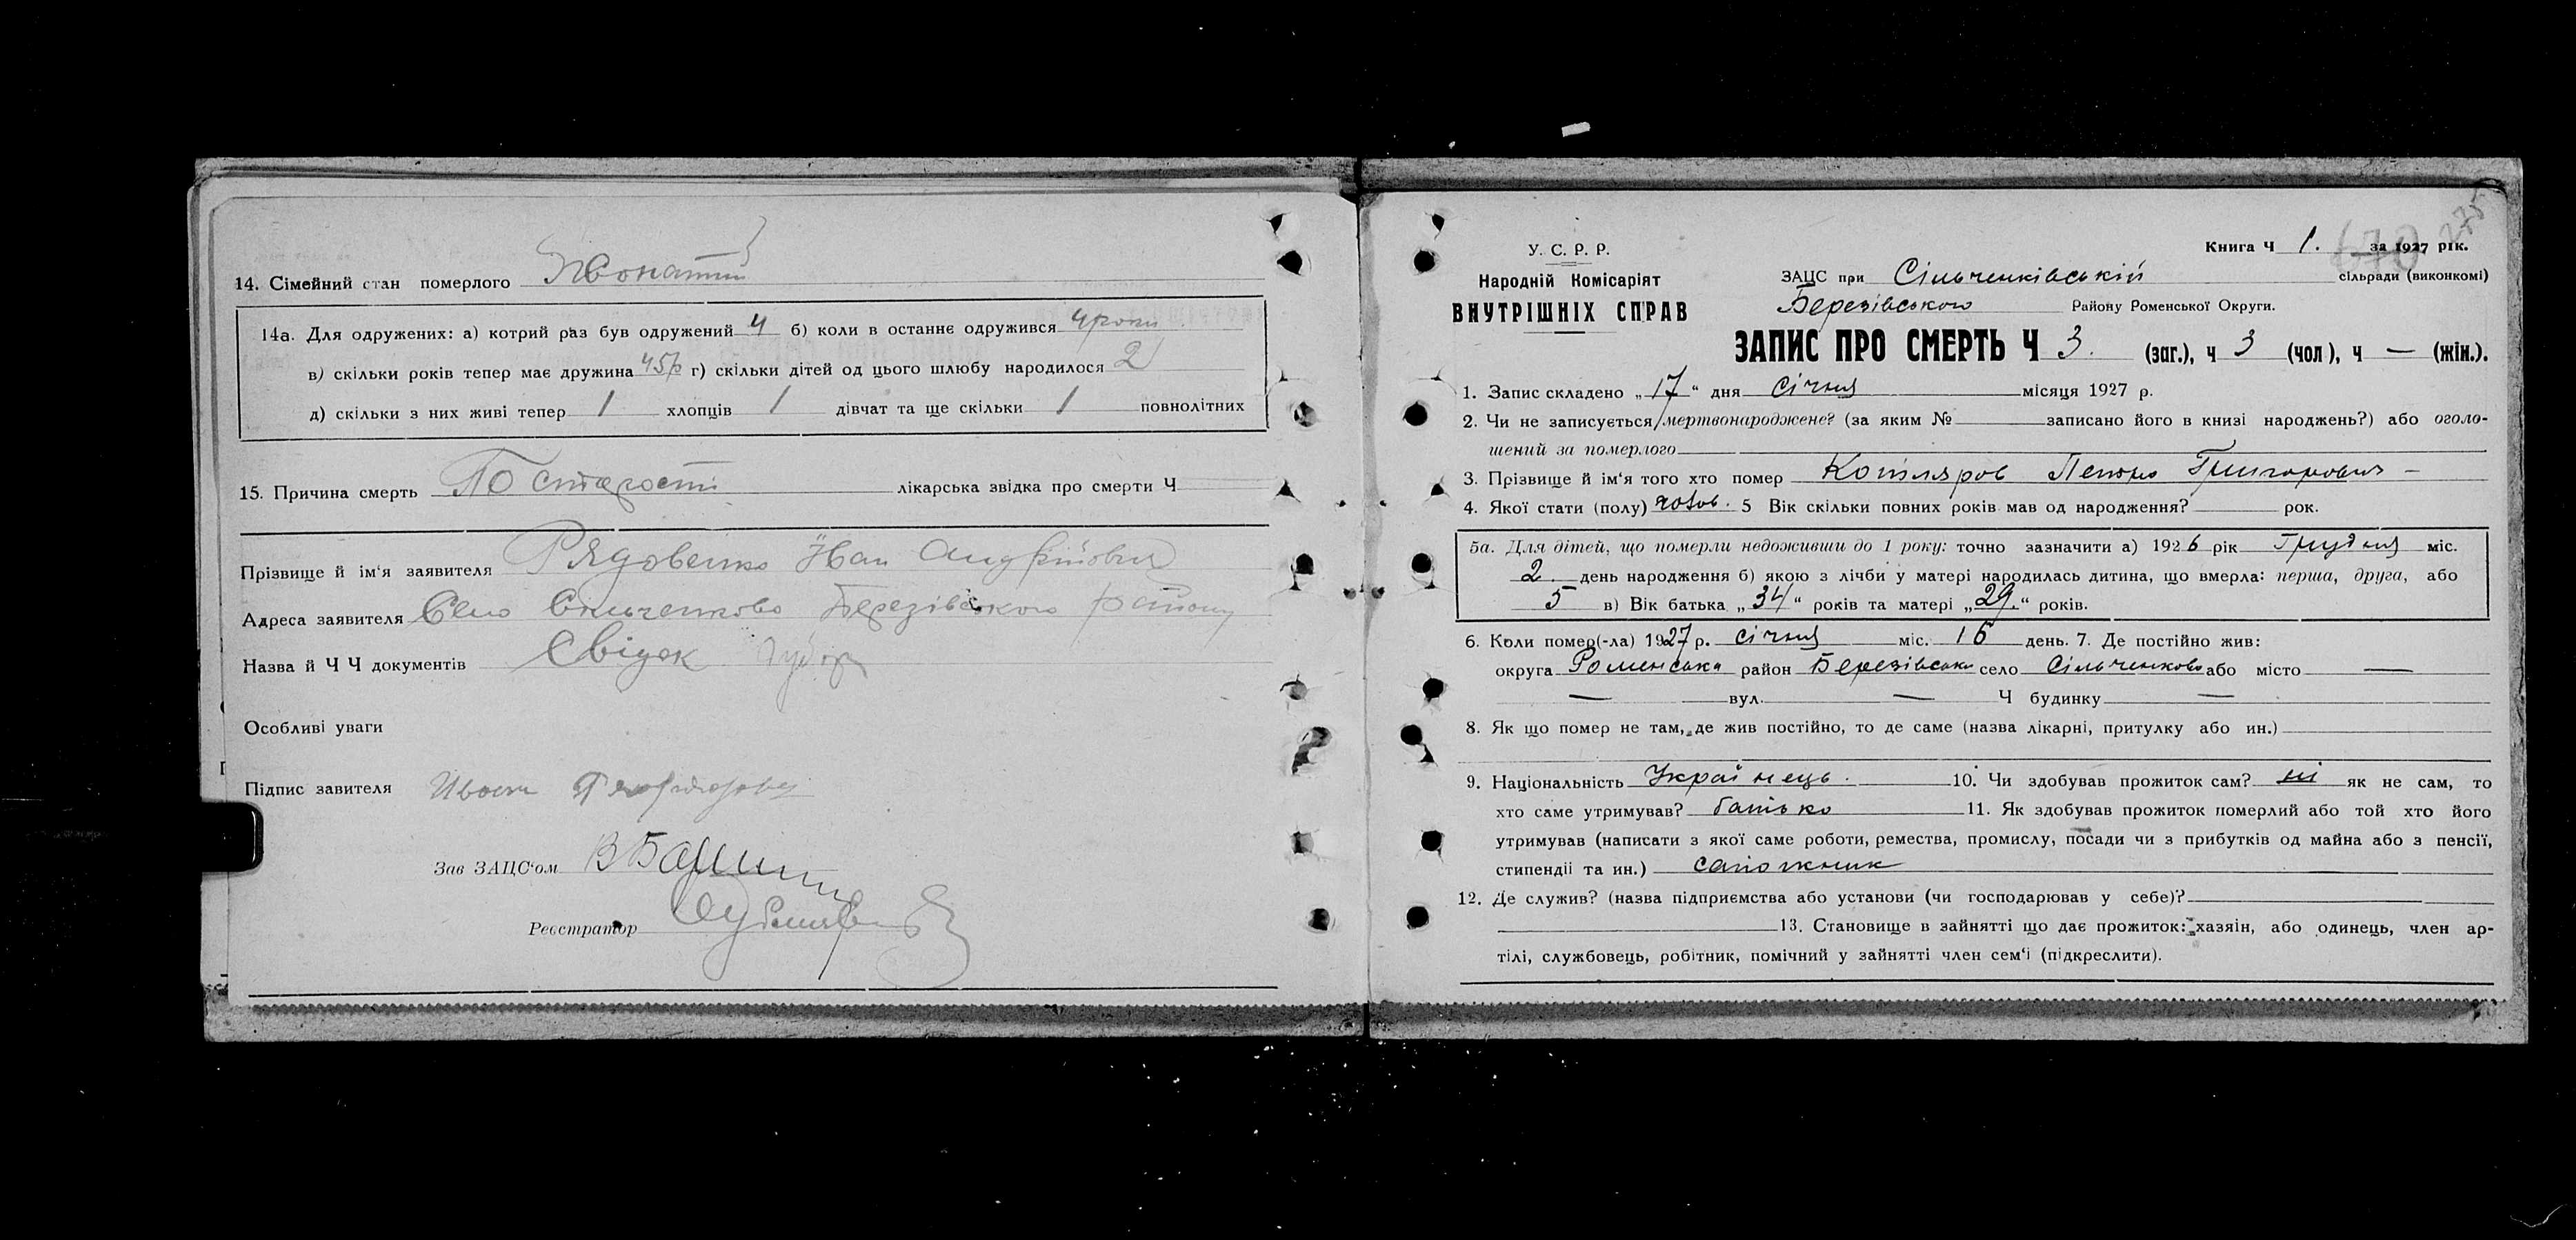 14. Сімейний стан померлого Жонатий
14а. Для одружених: а) котрий раз був одружений 4 б) коли в останнє одружився 4 роки
в) скільки років тепер має дружина 45р г) скільки дітей од цього шлюбу народилося 2
д) скільки з них живі тепер 1 хлопців 1 дівчат та ще скільки 1 повнолітних
15. Причина смерть По старости лікарська звідка про смерти Ч
Прізвище й ім‘я заявителя Іван
Адреса заявителя Село Сильченково Березівского району
Назва й Ч Ч документів Свідок
Особливі уваги
Підпис завителя
Зав ЗАЦС‘ом
Реєстратор
275
У. С. Р. Р.
Народній Комісаріят
ВНУТРІШНІХ СПРАВ
Книга Ч 1. за 1927 рік.
ЗАЦС при Сільченківській сільради (виконкомі)
Березівського Району Роменської Округи.
ЗАПИС ПРО СМЕРТЬ Ч 3. (заг.), ч 3 (чол), ч — (жін.).
1. Запис складено „17“ дня січня місяця 1927 р.
2. Чи не записується мертвонароджене? (за яким № записано його в книзі народжень?) або оголо-
шений за померлого
3. Прізвище й ім‘я того хто помер Котляров Петро Григорович —
4. Якої стати (полу) чолов. 5 Вік скільки повних років мав од народження? рок.
5а. Для дітей, що померли недоживши до 1 року: точно зазначити а) 1926 рік Грудня міс.
2. день народження б) якою з лічби у матері народилась дитина, що вмерла: перша, друга, або
5 в) Вік батька „34“ років та матері „29.“ років.
6. Коли помер(-ла) 1927 р. січня міс. 16 день. 7. Де постійно жив:
округа Роменська район Березівськи село Сільченково або місто —
— вул. — Ч будинку —
8. Як що помер не там, де жив постійно, то де саме (назва лікарні, притулку або ин.)
9. Національність Українець. 10. Чи здобував прожиток сам? ні як не сам, то
хто саме утримував? батько 11. Як здобував прожиток померлий або той хто його
утримував (написати з якої саме роботи, ремества, промислу, посади чи з прибутків од майна або з пенсії,
стипендії та ин.) сапожник
12. Де служив? (назва підприємства або установи (чи господарював у себе)?
13. Становище в зайнятті що дає прожиток: хазяін, або одинець, член ар-
тілі, службовець, робітник, помічний у зайнятті член сем‘і (підкреслити).